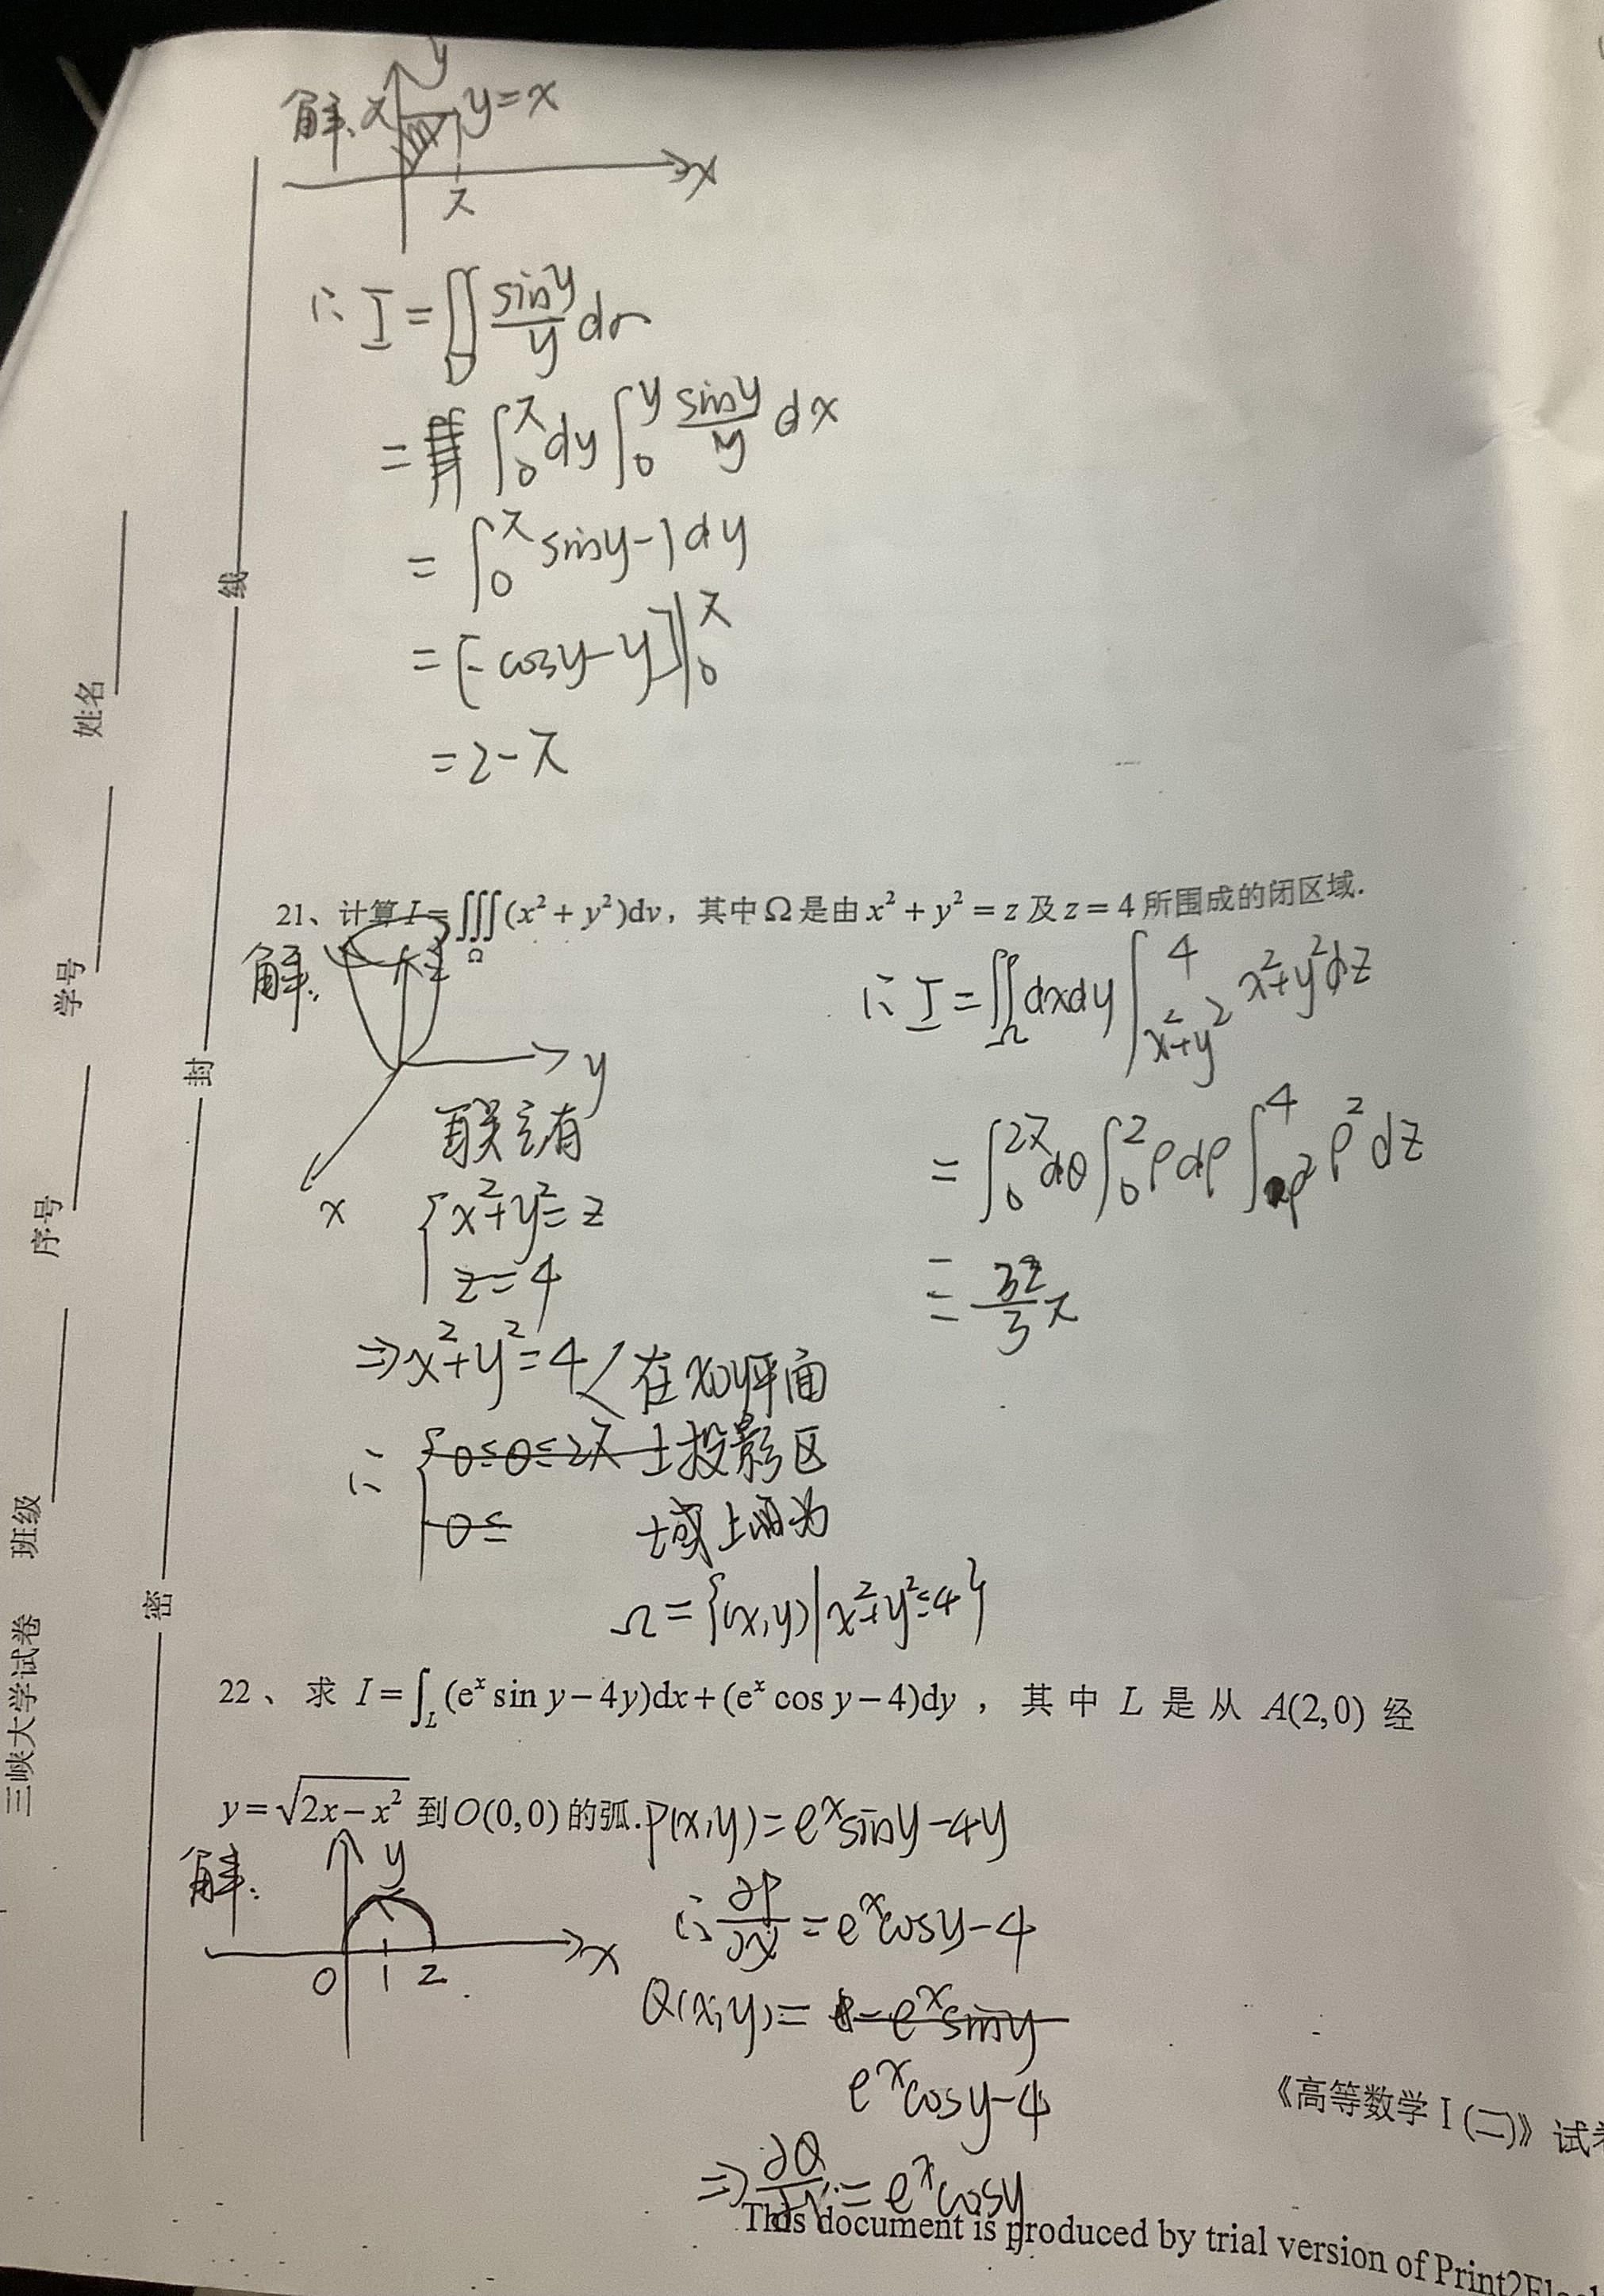 解:
y
π
y=x
x
π
∴ I=∬_D siny/y dσ
= ∫_0^π dy∫_0^y siny/y dx
= ∫_0^π siny-1dy
= [-cosy-y]|_0^π
= 2-π
21、计算 I=∭_Ω(x²+y²)dv，其中Ω是由 x²+y²=z 及 z=4 所围成的闭区域.
解:
z
y
x
联立有
{x²+y²=z
z=4
⇒x²+y²=4
在xoy平面
∴ {0≤θ≤2π
上投影区
0≤
域上面为
Ω={(x,y)|x²+y²≤4}
∴ I=∬_Ω dxdy∫_{x²+y²}^4 x²+y²dz
= ∫_0^{2π}dθ∫_0^2 ρdρ∫_{ρ²}^4 ρ²dz
= 32/3 π
22、求 I=∫_L(eˣ sin y-4y)dx+(eˣ cos y-4)dy，其中 L 是从 A(2,0) 经
y=√(2x-x²) 到 O(0,0) 的弧.
解:
y
x
0 1 2
P(x,y)=eˣsiny-4y
∴ ∂P/∂y=eˣcosy-4
Q(x,y)= -eˣsiny
eˣcosy-4
⇒ ∂Q/∂x=eˣcosy
《高等数学Ⅰ(二)》试卷
This document is produced by trial version of Print2Flash
三峡大学试卷 班级 序号 学号 姓名
密 封 线